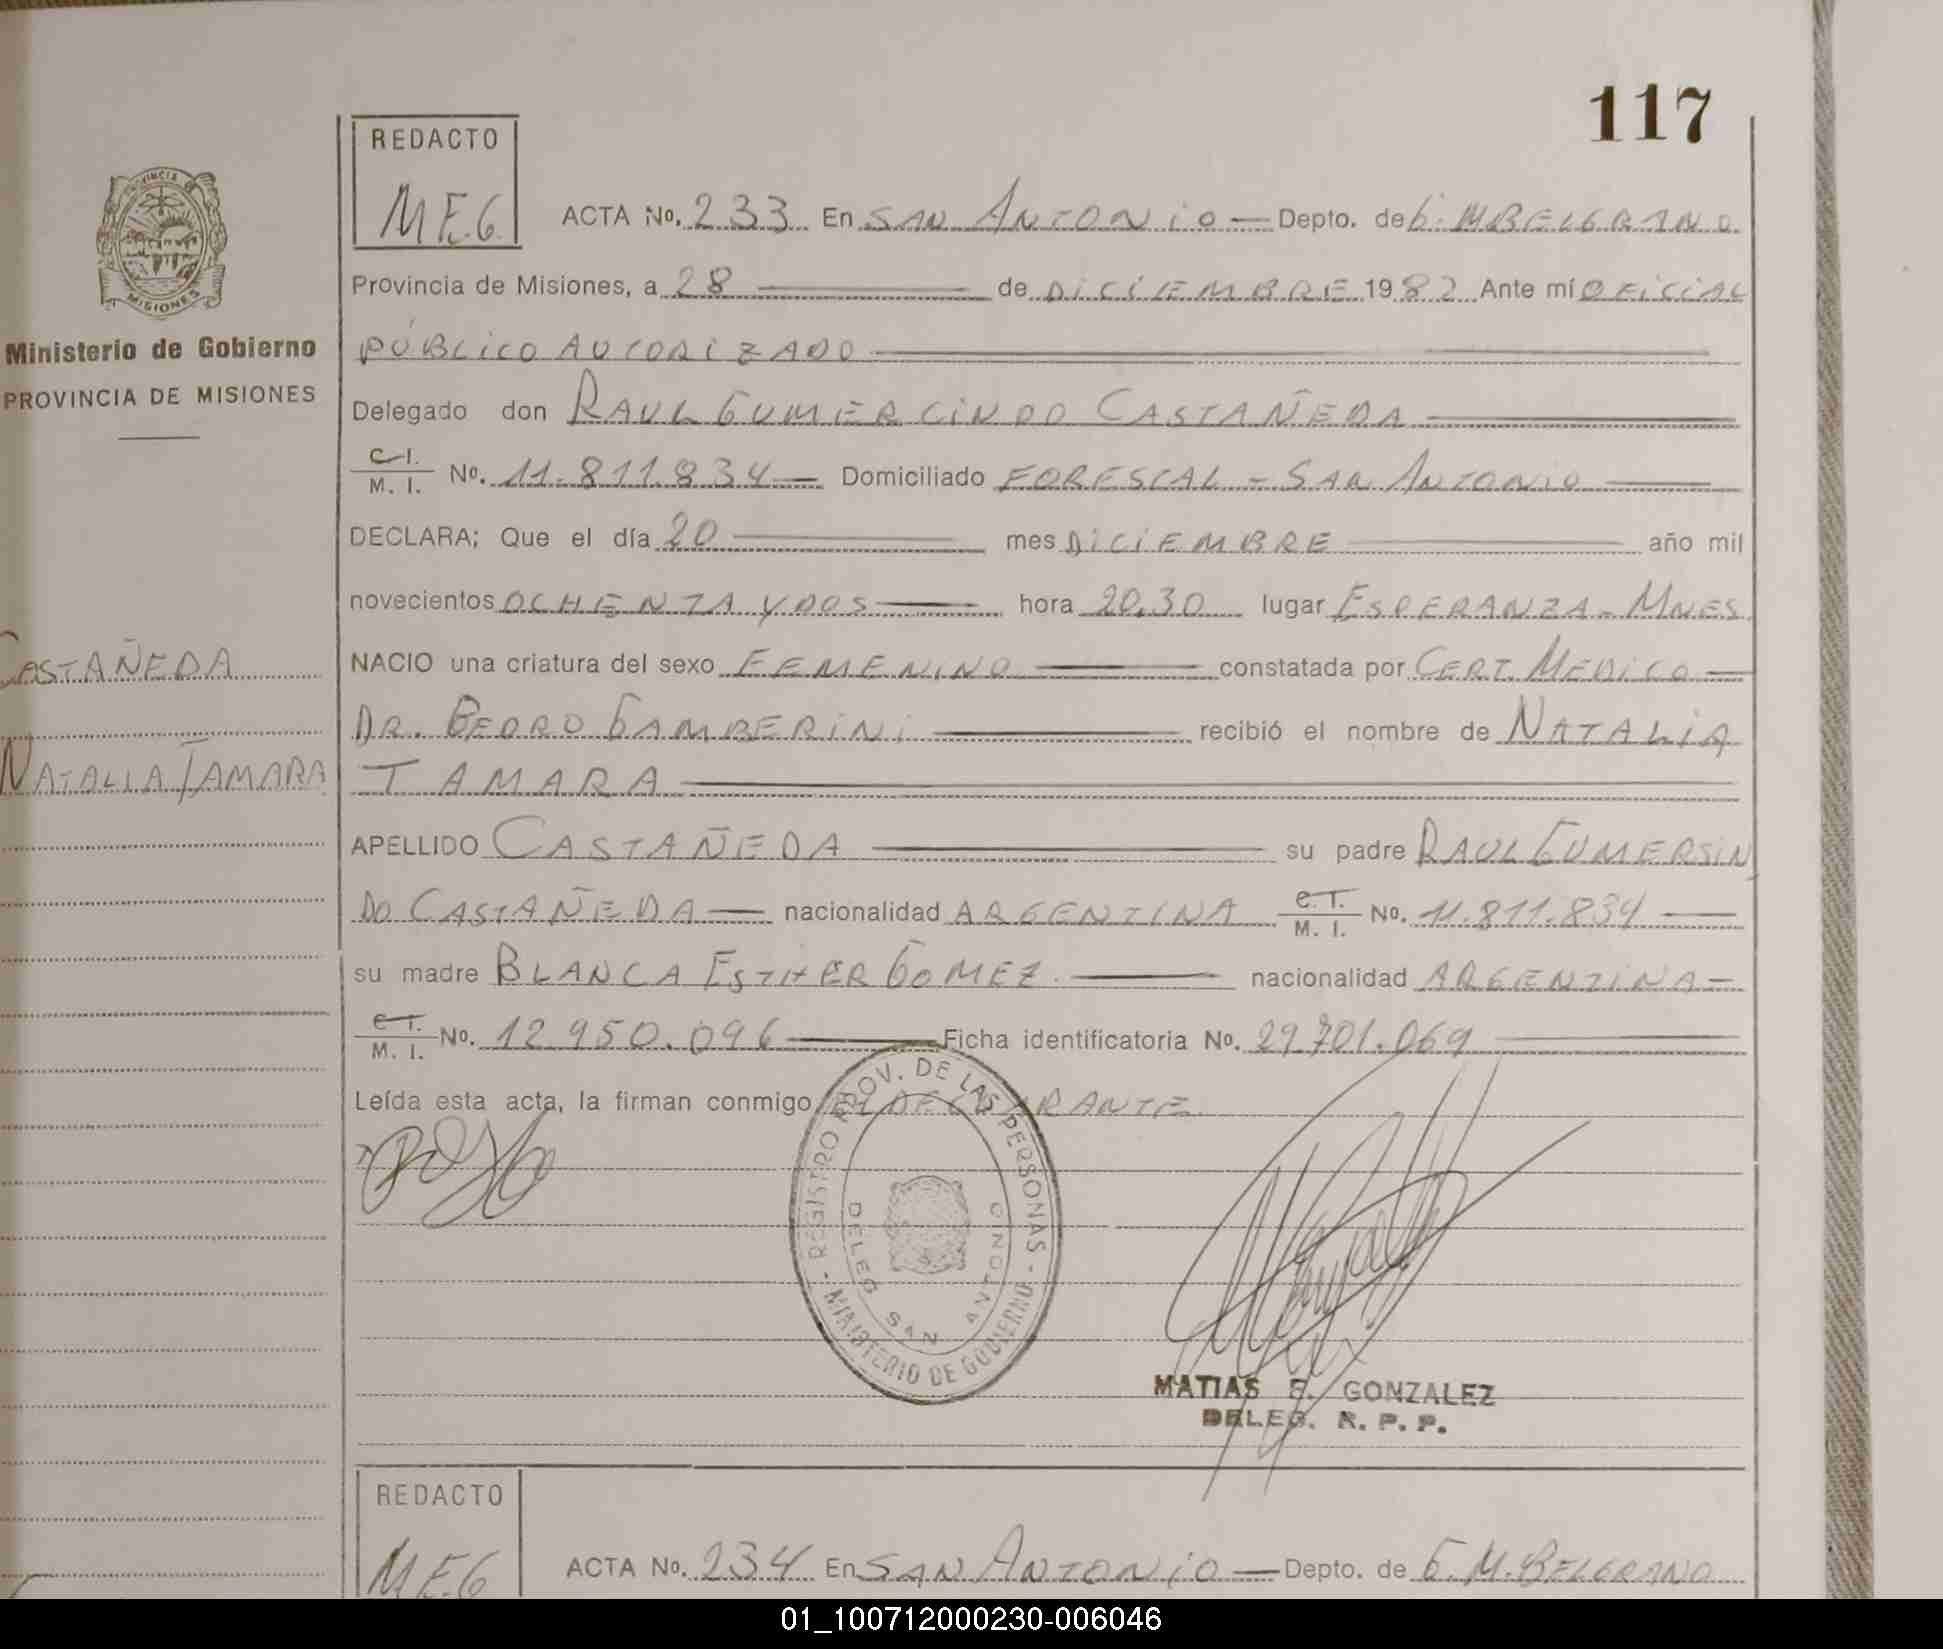 117
REDACTO
M.E.G.
ACTA No. 233 En SAN ANTONIO — Depto. de G. M. BELGRANO
PROVINCIA
MISIONES
Provincia de Misiones, a 28 — de DICIEMBRE 1982 Ante mí OFICIAL
Ministerio de Gobierno
PÚBLICO AUTORIZADO
PROVINCIA DE MISIONES
Delegado don RAUL GUMERCINDO CASTAÑEDA
C.I.
M. I. No. 11.811.834 — Domiciliado FORESTAL - SAN ANTONIO
DECLARA; Que el día 20 — mes DICIEMBRE — año mil
novecientos OCHENTA Y DOS — hora 20,30 lugar ESPERANZA - MNES
CASTAÑEDA
NACIO una criatura del sexo FEMENINO — constatada por CERT. MEDICO —
DR. PEDRO GAMBERINI — recibió el nombre de NATALIA
NATALIA TAMARA
TAMARA
APELLIDO CASTAÑEDA — su padre RAUL GUMERSIN
DO CASTAÑEDA — nacionalidad ARGENTINA C.I. M. I. No. 11.811.834 —
su madre BLANCA ESTHER GOMEZ — nacionalidad ARGENTINA —
C.I.
M. I. No. 12.950.096 — Ficha identificatoria No. 29.701.069
Leída esta acta, la firman conmigo EL DECLARANTE
REGISTRO PROV. DE LAS PERSONAS
DELEG SAN ANTONIO
MINISTERIO DE GOBIERNO
MATIAS E. GONZALEZ
DELEG. R. P. P.
REDACTO
M.E.G
ACTA No. 234 En SAN ANTONIO — Depto. de G. M. BELGRANO
01_100712000230-006046